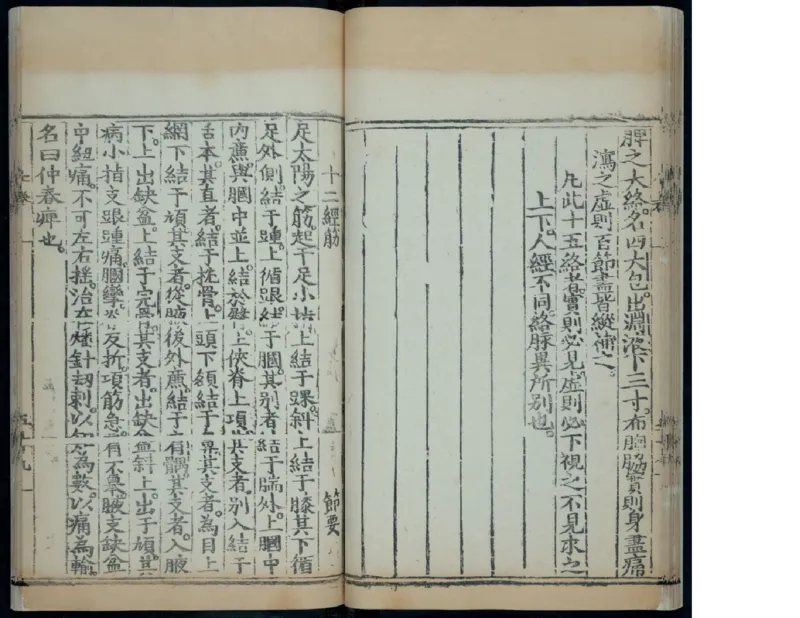 脾之大絡。名曰大包。出淵液下三寸。布胸脇實則身盡痛
瀉之虛則百節盡皆縱補之。
凡此十五絡者。實則必見。虛則必下視之不見求之
上下。人經不同絡脉異所別也。
十二經筋 節要
足太陽之筋。起于足小指上結于踝。斜上結于膝其下循
足外側。結于踵。上循跟結于膕。其别者結于腨外。上膕中
内廉與膕中並上結於臀上俠脊上項其支者。別入結于
舌本。其直者。結于枕骨。上頭下顔結于鼻其支者。為目上
網下結于頄其支者。從腋後外廉結于肩髃。其支者。入腋
下。上出缺盆。上結于完骨其支者出缺盆斜上出于頄其
病小指支跟踵痛。膕攣脊反折。項筋急肩不舉。腋支缺盆
中紐痛。不可左右揺。治在燔針劫刺。以知為數。以痛為輸。
名曰仲春痺也。